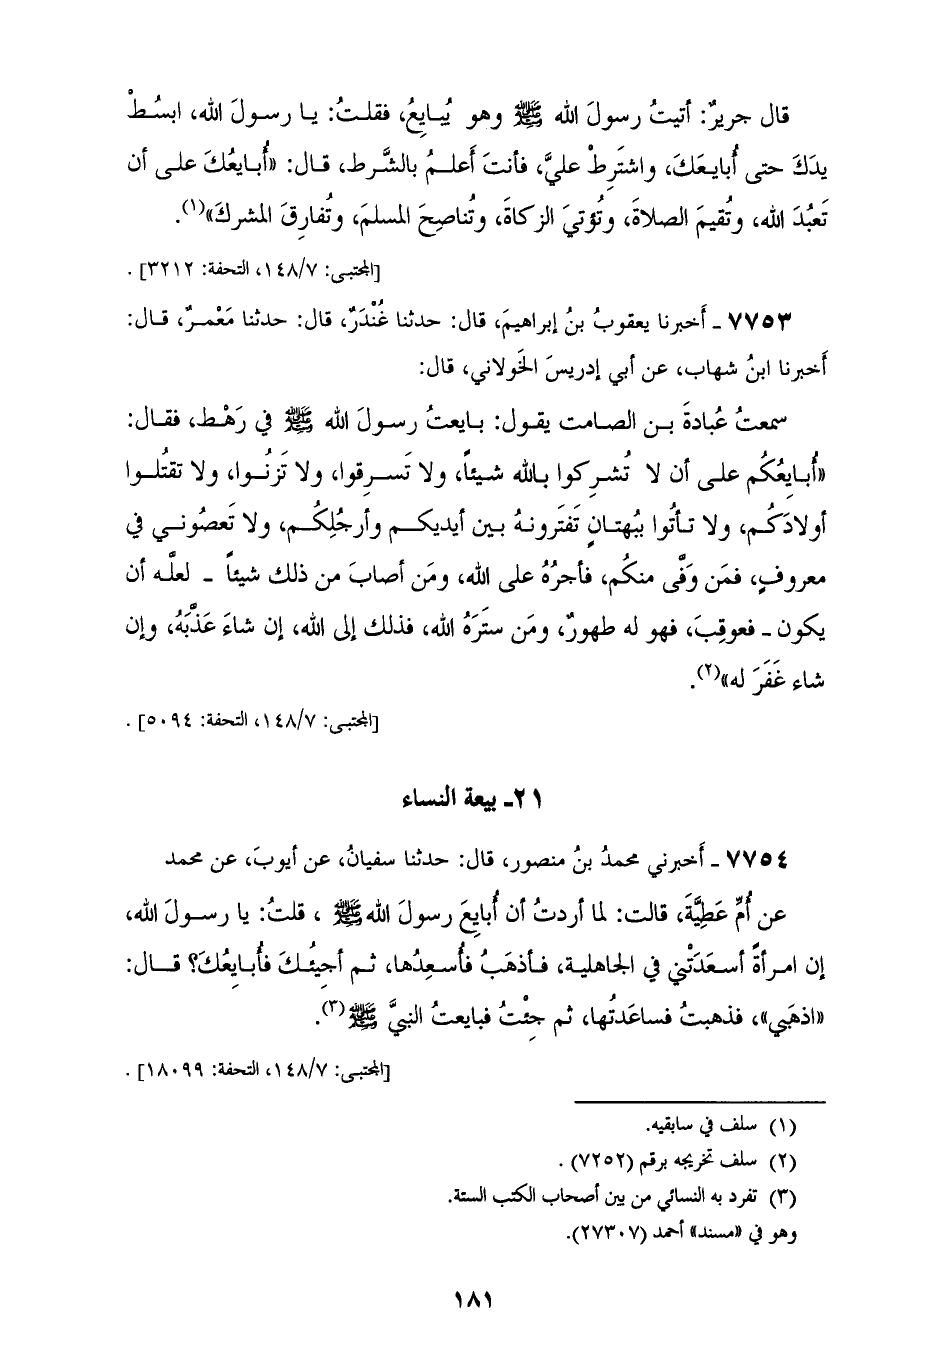 قال جريرٌ: أتيتُ رسولَ الله ﷺ وهو يُبايِعُ، فقلتُ: يا رسولَ الله، ابسُطْ
يدَكَ حتى أُبايعَكَ، واشتَرِطْ عليَّ، فأنتَ أعلمُ بالشَّرط، قال: «أُبايعُكَ على أن
تَعبُدَ الله، وتُقيمَ الصلاةَ، وتُؤتيَ الزكاةَ، وتُناصِحَ المسلمَ، وتُفارِقَ المشركَ»(١).
[المجتبى: ١٤٨/٧، التحفة: ٣٢١٢] .
٧٧٥٣ ـ أَخبرنا يعقوبُ بنُ إبراهيمَ، قال: حدثنا غُنْدَرٌ، قال: حدثنا مَعْمرٌ، قال:
أَخبرنا ابنُ شهاب، عن أبي إدريسَ الخَولاني، قال:
سمعتُ عُبادةَ بن الصامت يقول: بايعتُ رسولَ الله ﷺ في رَهْط، فقال:
«أُبايِعُكُم على أن لا تُشرِكوا بالله شيئاً، ولا تَسرِقوا، ولا تَزنُوا، ولا تقتُلوا
أولادَكُم، ولا تأتُوا ببُهتانٍ تَفتَرونهُ بين أيديكم وأرجُلِكُم، ولا تَعصُوني في
معروفٍ، فمَن وَفَّى منكُم، فأجرُهُ على الله، ومَن أصابَ من ذلك شيئاً ـ لعلَّه أن
يكون ـ فعوقِبَ، فهو له طهورٌ، ومَن ستَرَهُ الله، فذلك إلى الله، إن شاءَ عَذَّبَهُ، وإن
شاء غَفَرَ له»(٢).
[المجتبى: ١٤٨/٧، التحفة: ٥٠٩٤] .
٢١ـ بيعة النساء
٧٧٥٤ ـ أَخبرني محمدُ بنُ منصور، قال: حدثنا سفيانُ، عن أيوبَ، عن محمد
عن أُمِّ عَطِيَّةَ، قالت: لما أردتُ أن أُبايِعَ رسولَ اللهﷺ ، قلتُ: يا رسولَ الله،
إن امرأةً أسعَدَتْني في الجاهلية، فأذهَبُ فأُسعِدُها، ثم أجيئُكَ فأُبايِعُكَ؟ قال:
«اذهَبي»، فذهبتُ فساعَدتُها، ثم جِئْتُ فبايعتُ النبيَّ ﷺ(٣).
[المجتبى: ١٤٨/٧، التحفة: ١٨٠٩٩] .
(١) سلف في سابقيه.
(٢) سلف تخريجه برقم (٧٢٥٢) .
(٣) تفرد به النسائي من بين أصحاب الكتب الستة.
وهو في «مسند» أحمد (٢٧٣٠٧).
١٨١